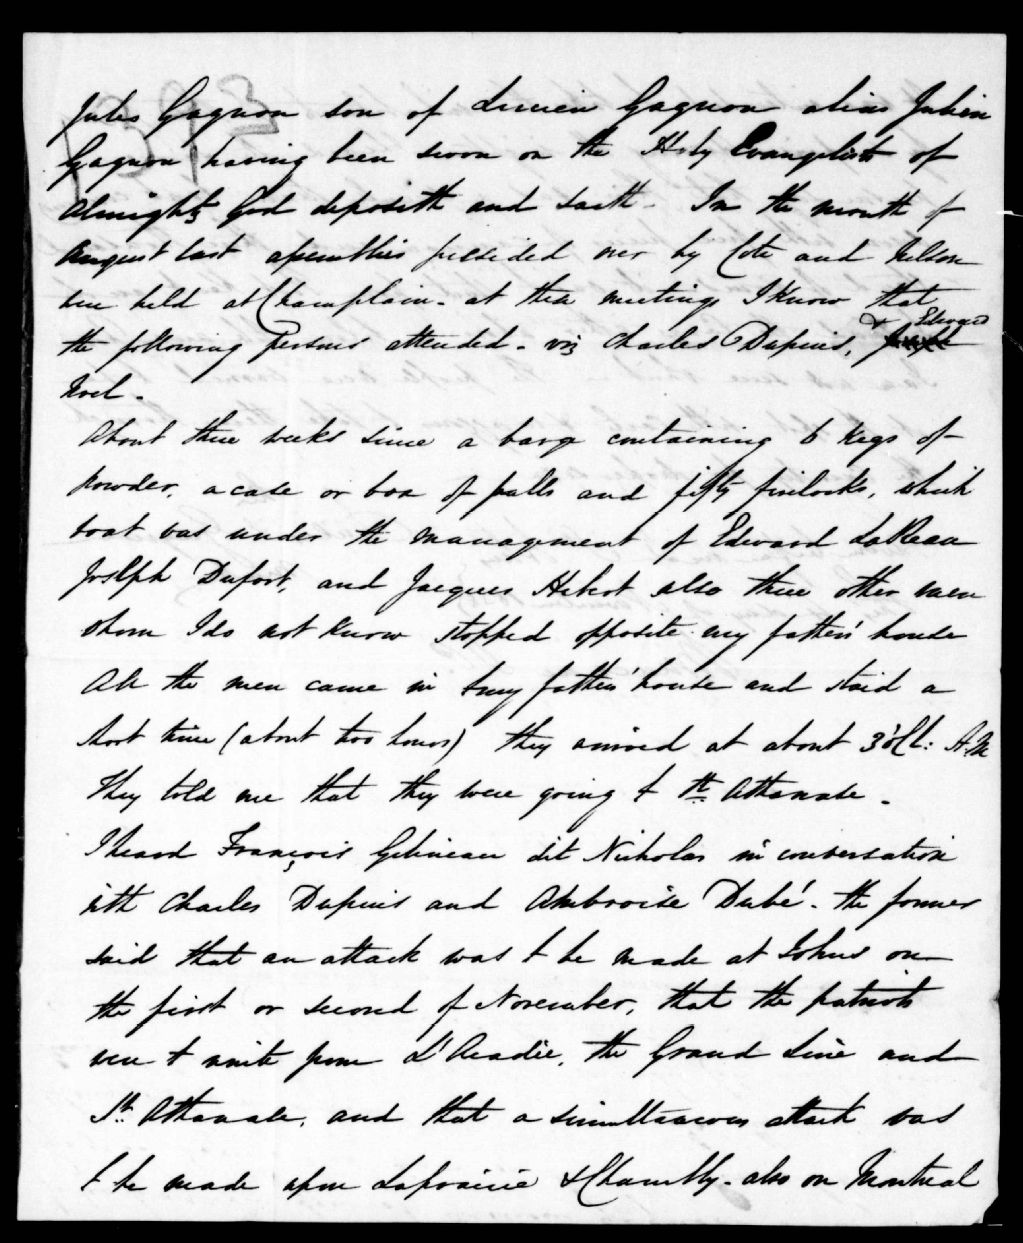 Jules Gagnon son of Lucien Gagnon alias Julien
Gagnon having been sworn on the Holy Evangelists of
Almighty God deposeth and saith - In the month of
August last assemblies presided over by Cote and Nelson
were held at Champlain - at these meetings I know that
the following persons attended - viz Charles Dupuis, & Edward
Noel -
About three weeks since a barge containing 6 kegs of
powder, a case or box of balls and fifty firelocks, which
boat was under the management of Edward LaReau
Joseph Dufort, and Jacques Hebert also three other men
whom I do not know stopped opposite my father's house
All the men came in my father's house and staid a
short time (about two hours) they arrived at about 3 o'Cl: A.M
They told me that they were going to St. Athanase -
I heard François Gelineau dit Nicholas in conversation
with Charles Dupuis and Ambroise Dubé - the former
said that an attack was to be made at St Johns on
the first or second of November, that the patriots
were to unite from L'Acadie, the Grand Line and
St. Athanase, and that a simultaneous attack was
to be made upon Laprairie & Chambly - also on Montreal